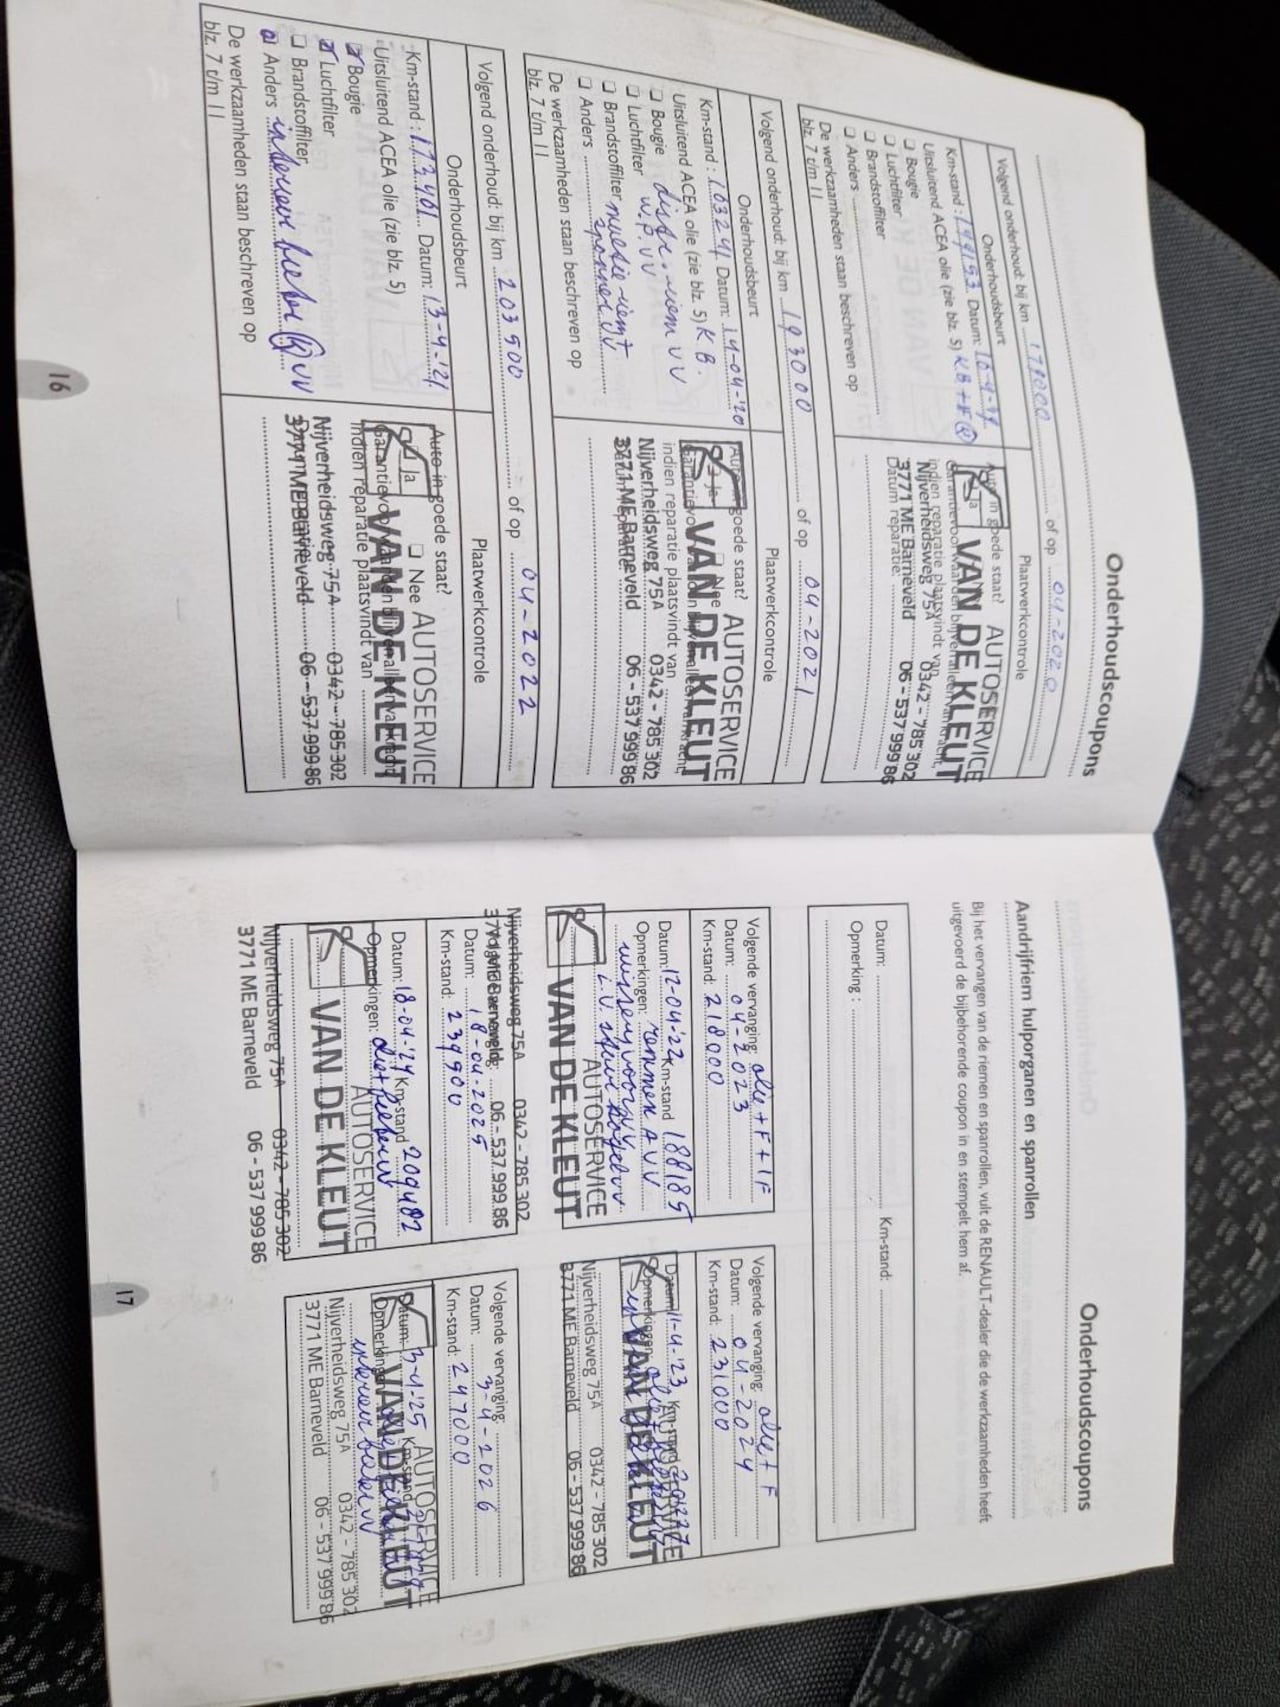 Onderhoudscoupons
Volgend onderhoud: bij km 178000 of op 04-2020
Onderhoudsbeurt
Plaatwerkcontrole
Km-stand: Datum:
Uitsluitend ACEA olie (zie blz. 5) KB+F
Bougie
Luchtfilter
Brandstoffilter
Anders
De werkzaamheden staan beschreven op
blz. 7 t/m 11
AUTOSERVICE
VAN DE KLEUT
Nijverheidsweg 75A 0342 - 785 302
3771 ME Barneveld 06 - 537 999 86
Datum reparatie:
Volgend onderhoud: bij km 193000 of op 04-2021
Onderhoudsbeurt
Plaatwerkcontrole
Km-stand: 163241 Datum: 14-04-'20
Uitsluitend ACEA olie (zie blz. 5) KB.
Bougie distr. riem VV
Luchtfilter W.P. VV
Brandstoffilter
Anders
De werkzaamheden staan beschreven op
blz. 7 t/m 11
goede staat?
AUTOSERVICE
VAN DE KLEUT
indien reparatie plaatsvindt van
Nijverheidsweg 75A 0342 - 785 302
3771 ME Barneveld 06 - 537 999 86
Volgend onderhoud: bij km 203500 of op 04-2022
Onderhoudsbeurt
Plaatwerkcontrole
Km-stand: 173401 Datum: 13-4-'21
Uitsluitend ACEA olie (zie blz. 5)
Bougie
Luchtfilter
Brandstoffilter
Anders interieur VV
De werkzaamheden staan beschreven op
blz. 7 t/m 11
Auto in goede staat?
Ja Nee
AUTOSERVICE
VAN DE KLEUT
indien reparatie plaatsvindt van
Nijverheidsweg 75A 0342 - 785 302
3771 ME Barneveld 06 - 537 999 86
16
Onderhoudscoupons
Aandrijfriem hulporganen en spanrollen
Bij het vervangen van de riemen en spanrollen, vult de RENAULT-dealer die de werkzaamheden heeft
uitgevoerd de bijbehorende coupon in en stempelt hem af.
Datum: Km-stand:
Opmerking:
Volgende vervanging: olie+F+IF
Datum: 04-2023
Km-stand: 218000
Datum: 12-04-'22 Km-stand 188185
Opmerkingen: remmen AVV
L.V.
AUTOSERVICE
VAN DE KLEUT
Nijverheidsweg 75A 0342 - 785 302
3771 ME Barneveld 06 - 537 999 86
Volgende vervanging: olie+F
Datum: 04-2024
Km-stand: 231000
Datum: 11-4-'23 Km-stand
Opmerkingen:
VAN DE KLEUT
Nijverheidsweg 75A 0342 - 785 302
3771 ME Barneveld 06 - 537 999 86
Datum: 18-04-2025
Km-stand: 239900
Datum: 18-04-'24 Km-stand 209482
Opmerkingen:
AUTOSERVICE
VAN DE KLEUT
Nijverheidsweg 75A 0342 - 785 302
3771 ME Barneveld 06 - 537 999 86
Volgende vervanging:
Datum: 3-4-2026
Km-stand: 247000
Datum: 3-4-'25 Km-stand
Opmerkingen:
AUTOSERVICE
VAN DE KLEUT
Nijverheidsweg 75A 0342 - 785 302
3771 ME Barneveld 06 - 537 999 86
17